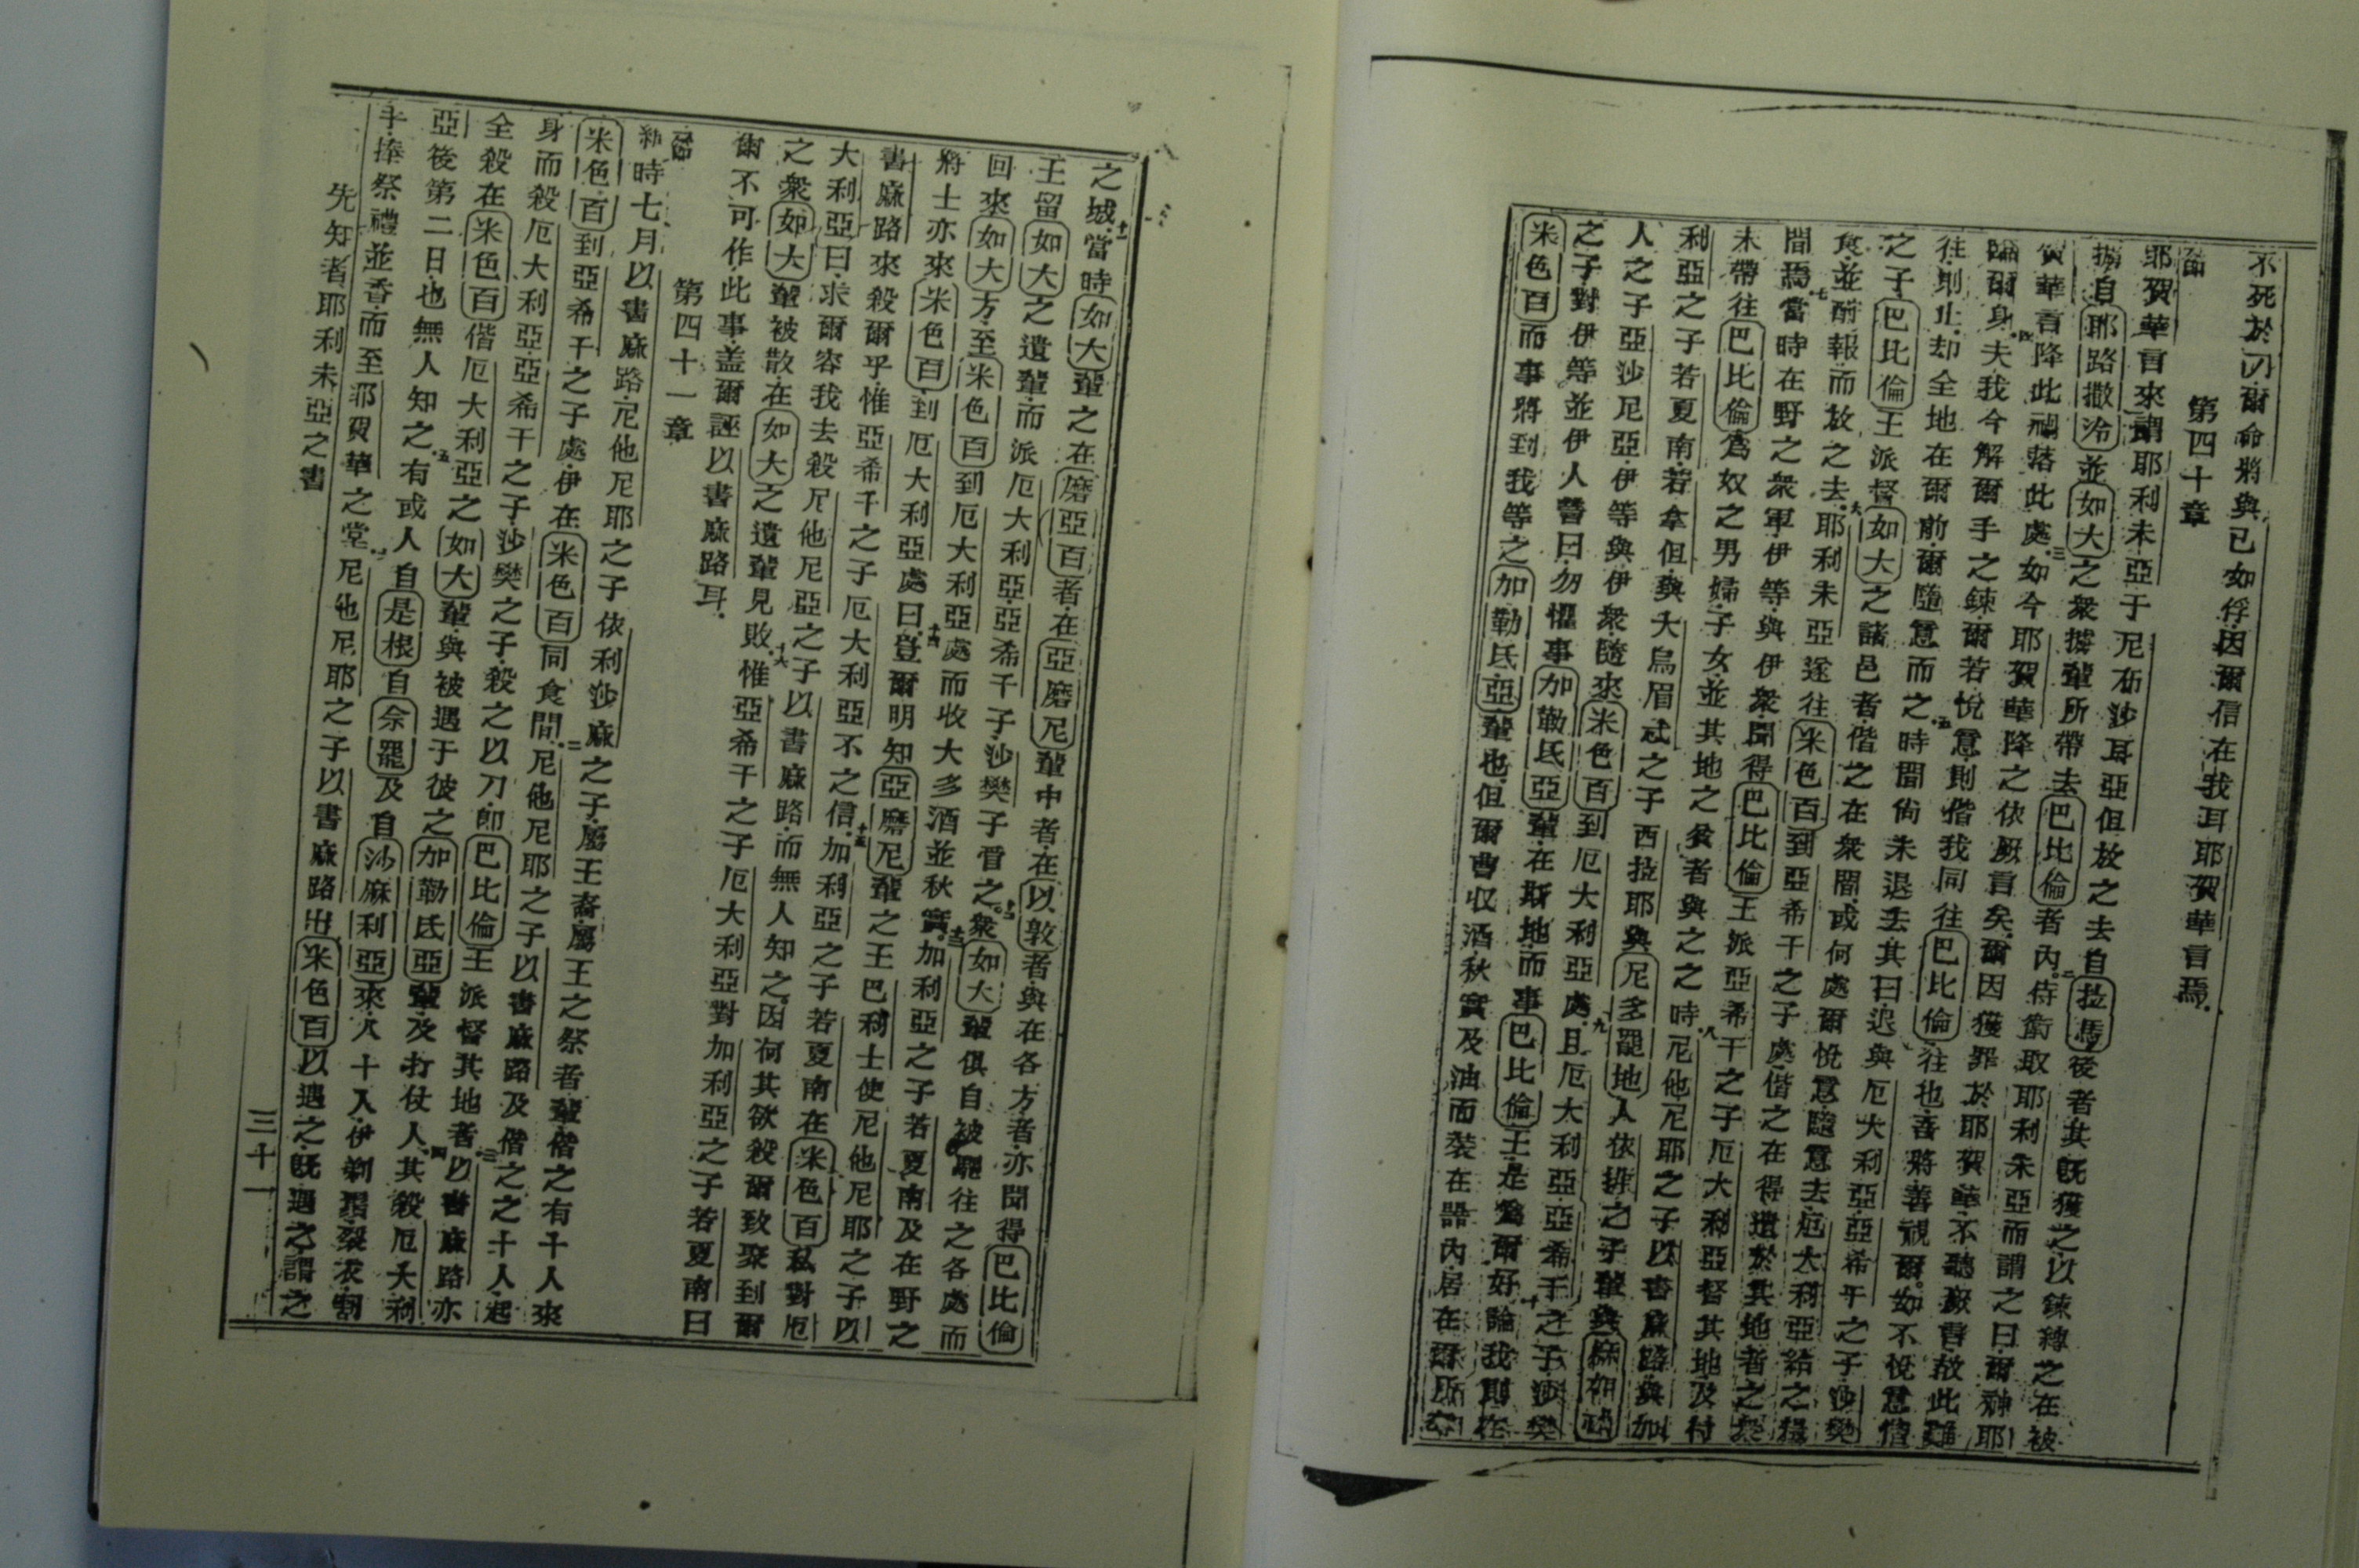 不死於刀爾命將與已如俘因爾信在我耳耶賀華言焉
第四十章
節
耶賀華言來謂耶利未亞于尼布沙耳亞但放之去自拉馬後者其既獲之以鍊縛之在被
擄自耶路撒冷並如大之衆擄輩所帶去巴比倫者內二侍衛取耶利未亞而謂之曰爾神耶
賀華言降此禍落此處三如今耶賀華降之依厥言矣爾因獲罪於耶賀華不聽厥言故此難
臨爾身四夫我今解爾手之鍊爾若悅意則偕我同往巴比倫往也吾將善視爾如不悅意偕
往則止却全地在爾前爾隨意而之五時間尙未退去其曰退與厄大利亞亞希干之子沙樊
之子巴比倫王派督如大之諸邑者偕之在衆間或何處爾悅意隨意去厄大利亞給之糧
食並酧報而放之去六耶利未亞遂往米色百到亞希干之子處偕之在得遺於其地者之衆
間焉七當時在野之衆軍伊等與伊衆聞得巴比倫王派亞希干之子厄大利亞督其地及付
未帶往巴比倫爲奴之男婦子女並其地之貧者與之之時八尼他尼耶之子以書麻路與加
利亞之子若夏南若拿但與大烏眉忒之子西拉耶與尼多罷地人依排之子輩與麻如
人之子亞沙尼亞伊等與伊衆隨來米色百到厄大利亞處九且厄大利亞亞希干之子沙樊
之子對伊等並伊人誓曰勿懼事加勒氐亞輩在斯地而事巴比倫王是爲爾好十論我則在
米色百而事將到我等之加勒氐亞輩也但爾曹収酒秋實及油而裝在器內居在爾所
之城十一當時如大輩之在磨亞百者在亞磨尼輩中者在以敦者與在各方者亦聞得巴比倫
王留如大之遺輩而派厄大利亞亞希干子沙樊子督之十二衆如大輩俱自被驅往之各處而
回來如大方至米色百到厄大利亞處而收大多酒並秋實十三加利亞之子若夏南及在野之
將士亦來米色百到厄大利亞處曰十四豈爾明知亞磨尼輩之王巴利士使尼他尼耶之子以
書麻路來殺爾乎惟亞希干之子厄大利亞不之信十五加利亞之子若夏南在米色百私對厄
大利亞曰求爾容我去殺尼他尼亞之子以書麻路而無人知之因何其欲殺爾致聚到爾
之衆如大輩被散在如大之遺輩見敗十六惟亞希干之子厄大利亞對加利亞之子若夏南曰
爾不可作此事盖爾誣以書麻路耳
第四十一章
節
時七月以書麻路尼他尼耶之子依利沙麻之子屬王裔屬王之祭者輩偕之有十人來
米色百到亞希干之子處伊在米色百同食間二尼他尼耶之子以書麻路及偕之之十人起
身而殺厄大利亞亞希干之子沙樊之子殺之以刀卽巴比倫王派督其地者三以書麻路亦
全殺在米色百偕厄大利亞之如大輩與被遇于彼之加勒氐亞輩及打仗人四其殺厄大利
亞後第二日也無人知之五有或人自是根自佘罷及自沙麻利亞來八十人伊剃鬍裂衣割
手捧祭禮並香而至耶賀華之堂六尼他尼耶之子以書麻路出米色百以遇之既遇之謂之
先知者耶利未亞之書
三十一